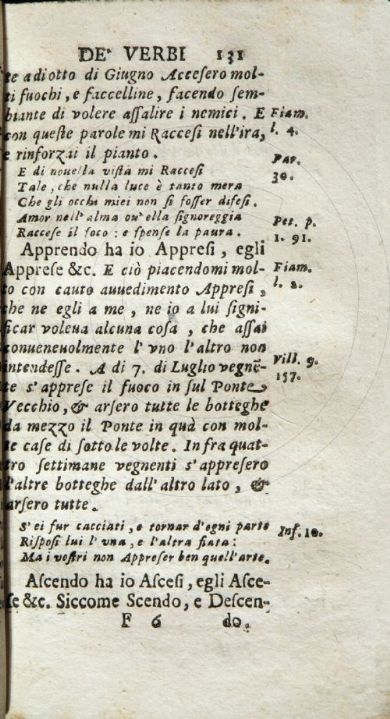 DE' VERBI 131
te adiotto di Giugno Accesero mol-
ti fuochi, e faccelline, facendo sem-
biante di volere assalire i nemici. E Fiam.
con queste parole mi Raccesi nell'ira, l. 4.
e rinforzai il pianto.
Par.
E di nouella vista mi Raccesi 30.
Tale, che nulla luce è tanto mera
Che gli occhi miei non si fosser difesi.
Amor nell'alma ou'ella signoreggia Pet. p.
Raccese il foco: e spense la paura. 1. 91.
Apprendo ha io Appresi, egli
Apprese &c. E ciò piacendomi mol- Fiam.
to con cauto auuedimento Appresi, l. 2.
che ne egli a me, ne io a lui signi-
ficar voleua alcuna cosa, che assai
conueneuolmente l'vno l'altro non
intendesse. A di 7. di Luglio vegnē- Vill. 9.
te s'apprese il fuoco in sul Ponte 157.
Vecchio, & arsero tutte le botteghe
da mezzo il Ponte in quà con mol-
te case di sotto le volte. Infra quat-
tro settimane vegnenti s'appresero
l'altre botteghe dall'altro lato, &
arsero tutte.
S'ei fur cacciati, e tornar d'ogni parte Inf. 10.
Risposi lui l'vna, e l'altra fiata:
Ma i vostri non Appreser ben quell'arte.
Ascendo ha io Ascesi, egli Asce-
se &c. Siccome Scendo, e Descen-
F 6 do.